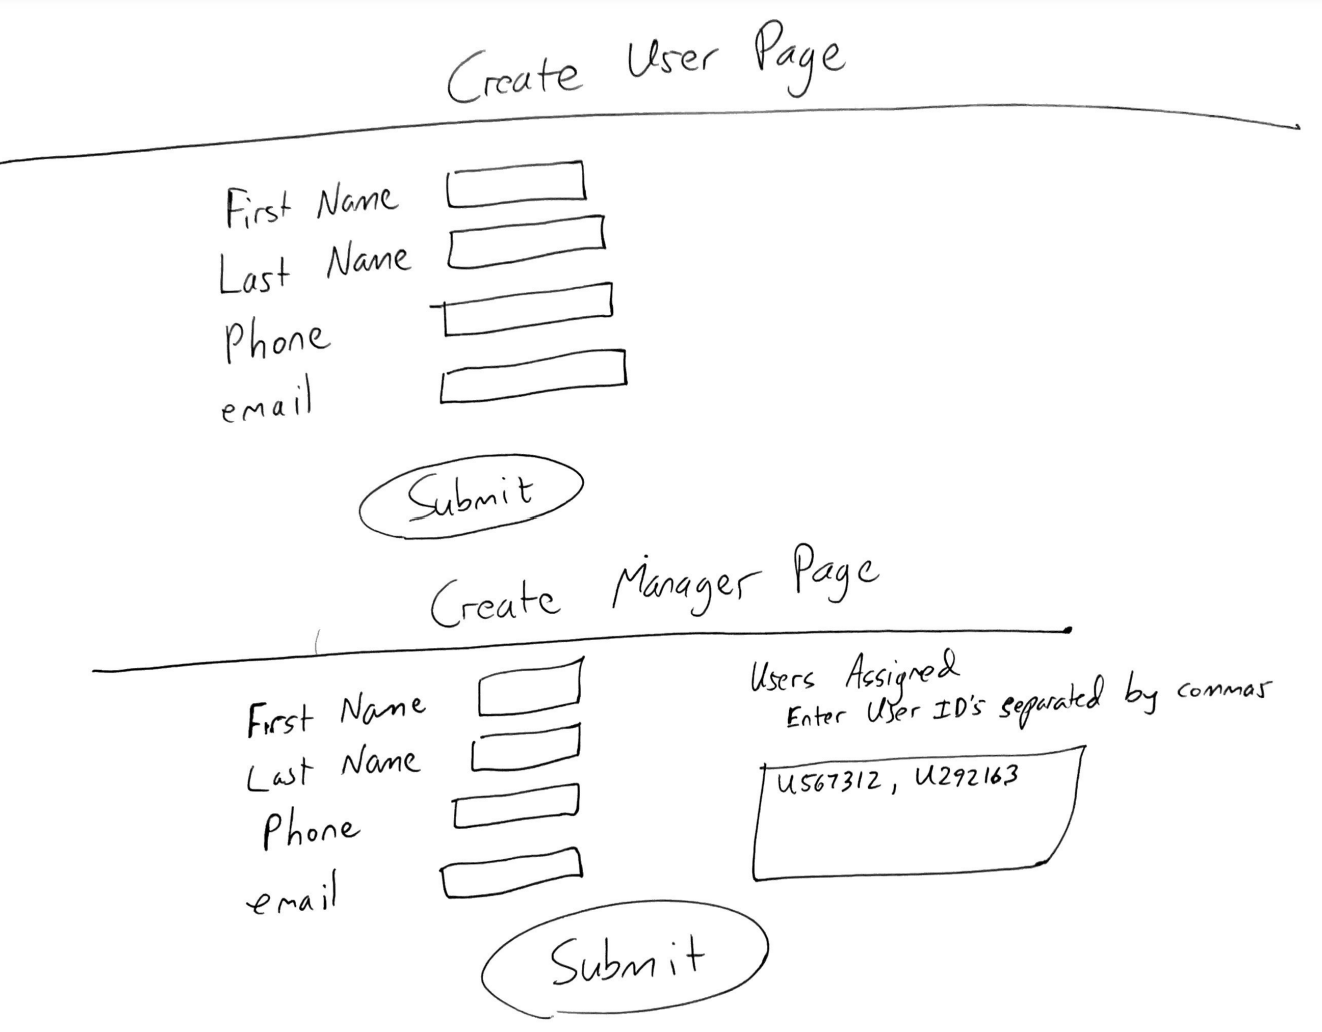 Create User Page
First Name
Last Name
Phone
email
Submit
Create Manager Page
First Name
Last Name
Phone
email
Users Assigned
Enter User ID's separated by commas
U567312, U292163
Submit